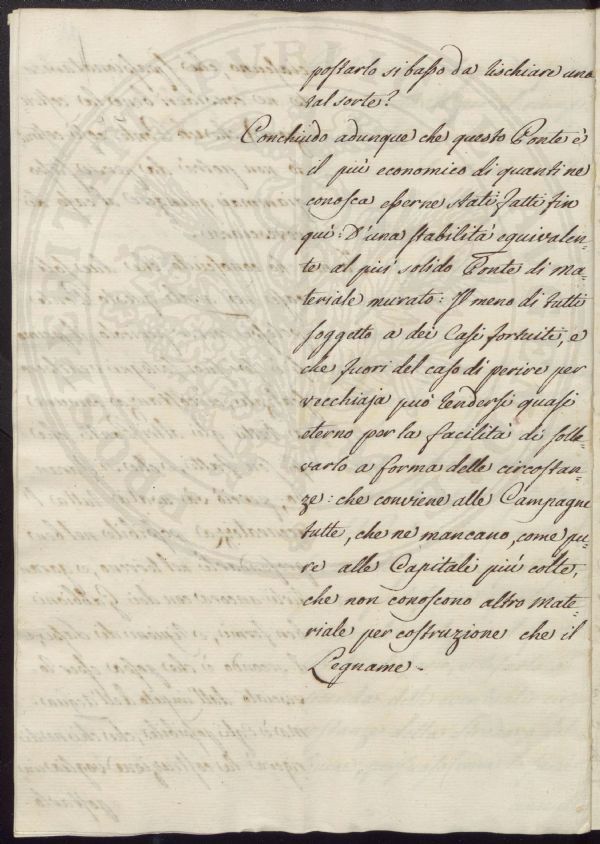 postarlo si basso da rischiare una
tal sorte?
Conchiudo adunque che questo Ponte è
il più economico di quanti ne
conosca esserne stati fatti fin
quì: D'una stabilità equivalen-
te al più solido Ponte di ma-
teriale murato: Il meno di tutti
soggetto a dei Casi fortuiti, e
che fuori del caso di perire per
vecchiaja può rendersi quasi
eterno per la facilità di solle-
varlo a forma delle circostan-
ze: che conviene alle Campagne
tutte, che ne mancano, come pu-
re alle Capitali più colte,
che non conoscono altro Mate-
riale per costruzione che il
Legname.